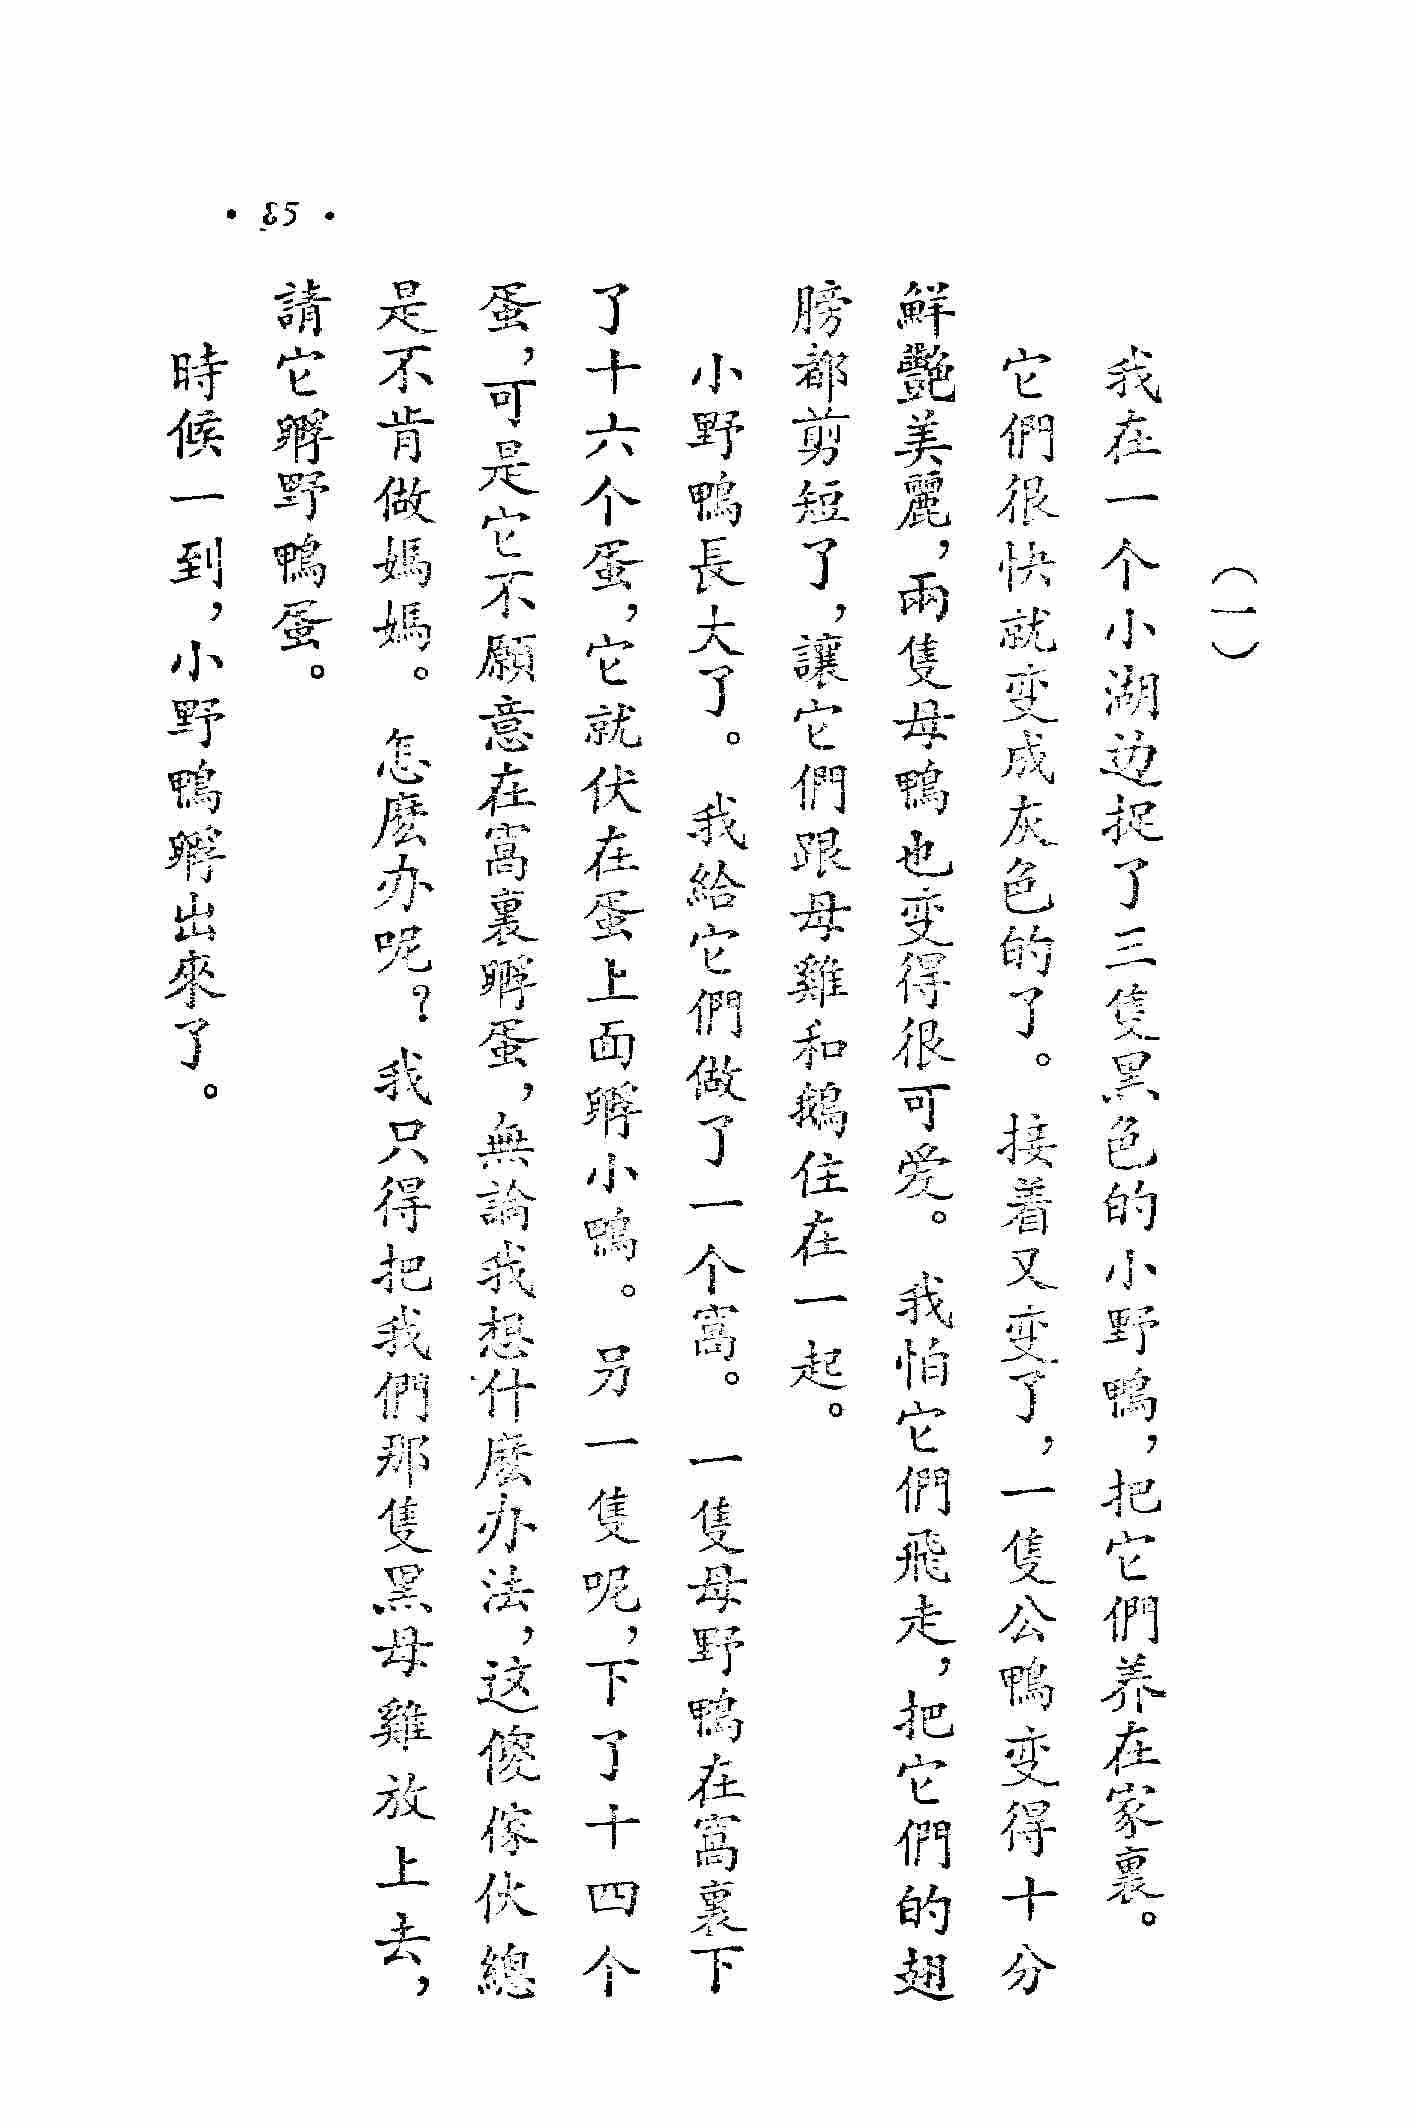 （一）
我在一个小湖边捉了三隻黑色的小野鴨，把它們养在家裏。
它們很快就变成灰色的了。接着又变了，一隻公鴨变得十分
鮮艷美麗，兩隻母鴨也变得很可爱。我怕它們飛走，把它們的翅
膀都剪短了，讓它們跟母雞和鵝住在一起。
小野鴨長大了。我給它們做了一个窩。一隻母野鴨在窩裏下
了十六个蛋，它就伏在蛋上面孵小鴨。另一隻呢，下了十四个
蛋，可是它不願意在窩裏孵蛋，無論我想什麼办法，这傻傢伙總
是不肯做媽媽。怎麼办呢？我只得把我們那隻黑母雞放上去，
請它孵野鴨蛋。
時候一到，小野鴨孵出來了。
• 85 •